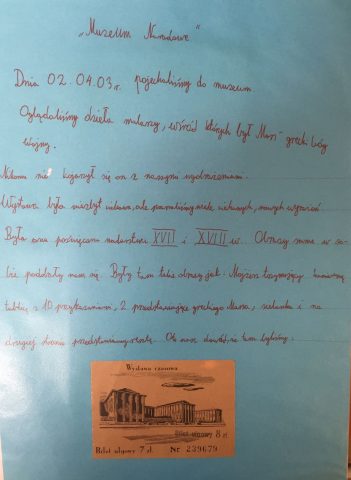 "Muzeum Narodowe"
Dnia 02.04.03r. pojechaliśmy do muzeum.
Oglądaliśmy dzieła malarzy, wśród których był Mars - grecki bóg
wojny.
Nikomu nie kojarzył się on z naszymi wyobrażeniami.
Wystawa była niezbyt ciekawa, ale poznaliśmy wiele ciekawych, nowych
Była ona poświęcona malarstwu XVII i XVIII w. Obrazy same w so-
bie podobały nam się. Były tam takie obrazy jak: Mojżesz trzymający kamienną
tablicę z 10 przykazaniami, 2 przedstawiające greckiego Marsa, i na
drugiej stronie przedstawimy resztę. Oto nasz dowód, że tam byliśmy:
Wystawa czasowa
Bilet ulgowy 8 zł
Bilet ulgowy 7 zł. Nr 239679